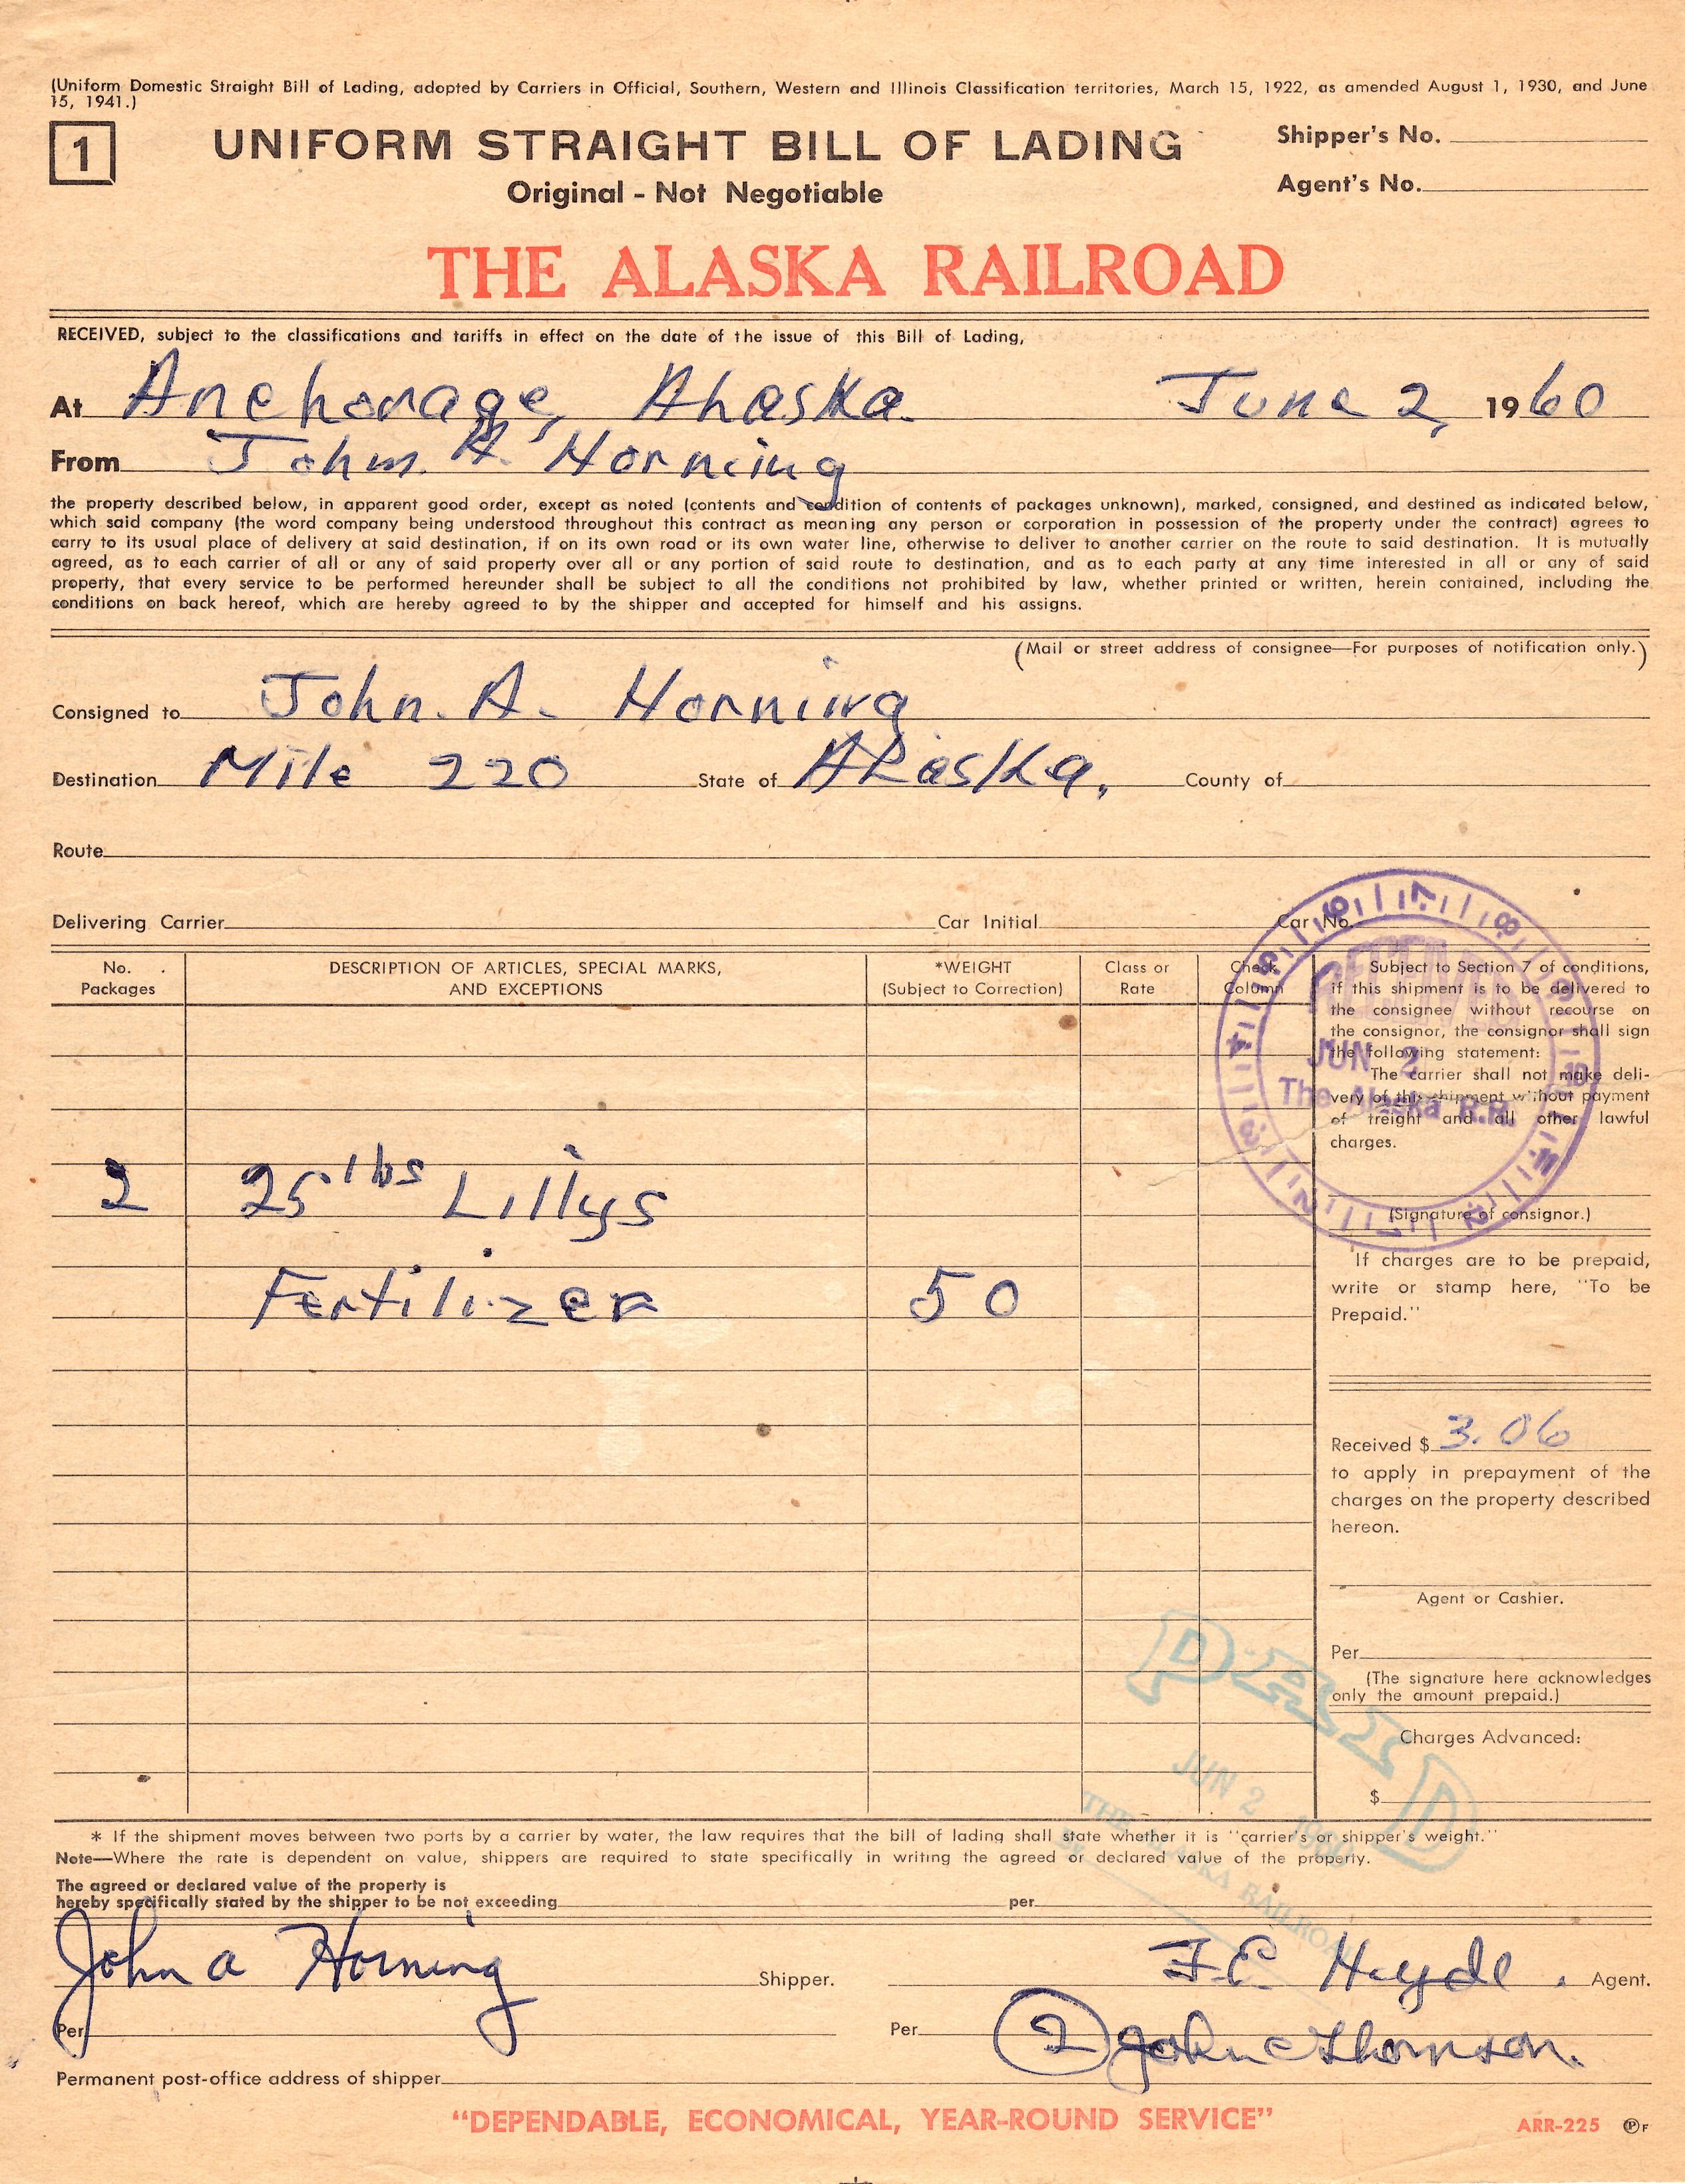 (Uniform Domestic Straight Bill of Lading, adopted by Carriers in Official, Southern, Western and Illinois Classification territories, March 15, 1922, as amended August 1, 1930, and June
15, 1941.)
1
UNIFORM STRAIGHT BILL OF LADING
Original - Not Negotiable
Shipper's No.
Agent's No.
THE ALASKA RAILROAD
RECEIVED, subject to the classifications and tariffs in effect on the date of the issue of this Bill of Lading,
At Anchorage, Alaska. June 2, 1960
From John A. Horning
the property described below, in apparent good order, except as noted (contents and condition of contents of packages unknown), marked, consigned, and destined as indicated below,
which said company (the word company being understood throughout this contract as meaning any person or corporation in possession of the property under the contract) agrees to
carry to its usual place of delivery at said destination, if on its own road or its own water line, otherwise to deliver to another carrier on the route to said destination. It is mutually
agreed, as to each carrier of all or any of said property over all or any portion of said route to destination, and as to each party at any time interested in all or any of said
property, that every service to be performed hereunder shall be subject to all the conditions not prohibited by law, whether printed or written, herein contained, including the
conditions on back hereof, which are hereby agreed to by the shipper and accepted for himself and his assigns.
(Mail or street address of consignee—For purposes of notification only.)
Consigned to John. A. Horning
Destination Mile 220 State of Alaska, County of
Route
Delivering Carrier Car Initial Car No.
No. Packages
DESCRIPTION OF ARTICLES, SPECIAL MARKS,
AND EXCEPTIONS
*WEIGHT
(Subject to Correction)
Class or
Rate
Check
Column
2 25 lbs Lillys
Fertilizer 50
Subject to Section 7 of conditions,
if this shipment is to be delivered to
the consignee without recourse on
the consignor, the consignor shall sign
the following statement:
The carrier shall not make deli-
very of this shipment without payment
of freight and all other lawful
charges.
(Signature of consignor.)
RECEIVED
JUN 2
The Alaska R.R.
1 2 3 4 5 6 7 8 9 10 11 12
If charges are to be prepaid,
write or stamp here, "To be
Prepaid."
Received $ 3.06
to apply in prepayment of the
charges on the property described
hereon.
Agent or Cashier.
Per
(The signature here acknowledges
only the amount prepaid.)
Charges Advanced:
$
PAID
JUN 2 1960
THE ALASKA RAILROAD
* If the shipment moves between two ports by a carrier by water, the law requires that the bill of lading shall state whether it is "carrier's or shipper's weight."
Note—Where the rate is dependent on value, shippers are required to state specifically in writing the agreed or declared value of the property.
The agreed or declared value of the property is
hereby specifically stated by the shipper to be not exceeding per
John A Horning Shipper. F.E. Heyde. Agent.
Per Per 2 John C Thomson.
Permanent post-office address of shipper
"DEPENDABLE, ECONOMICAL, YEAR-ROUND SERVICE"
ARR-225 P F